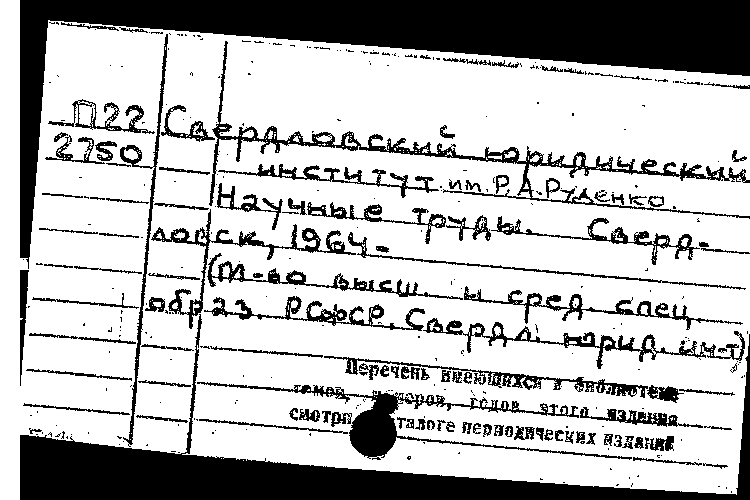 П22 Свердловский юридический
2750 институт им. Р.А.Руденко.
Научные труды. Сверд-
ловск, 1964-
(М-во высш. и сред. спец.
образ. РСФСР. Свердл. юрид. ин-т).
Перечень имеющихся в библиотеке
томов, номеров, годов этого издания
смотри каталоге периодических изданий